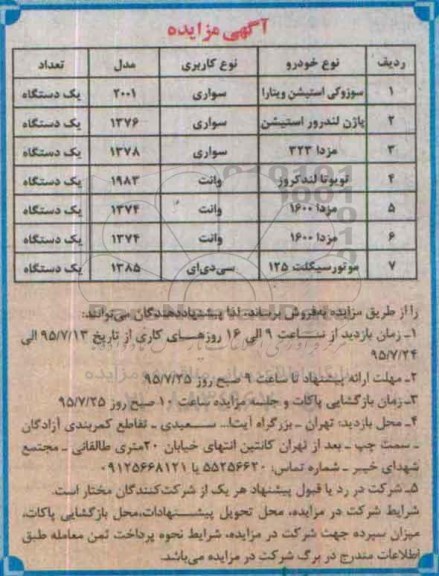 آگهی مزایده
ردیف نوع خودرو نوع کاربری مدل تعداد
۱ سوزوکی استیشن ویتارا سواری ۲۰۰۱ یک دستگاه
۲ پاژن لندرور استیشن سواری ۱۳۷۶ یک دستگاه
۳ مزدا ۳۲۳ سواری ۱۳۷۸ یک دستگاه
۴ تویوتا لندکروز وانت ۱۹۸۳ یک دستگاه
۵ مزدا ۱۶۰۰ وانت ۱۳۷۴ یک دستگاه
۶ مزدا ۱۶۰۰ وانت ۱۳۷۴ یک دستگاه
۷ موتورسیکلت ۱۲۵ سی‌دی‌ای ۱۳۸۵ یک دستگاه
را از طریق مزایده به‌فروش برساند. لذا پیشنهاددهندگان می‌توانند:
۱ـ زمان بازدید از ساعت ۹ الی ۱۶ روزهای کاری از تاریخ ۹۵/۷/۱۳ الی
۹۵/۷/۲۴
۲ـ مهلت ارائه پیشنهاد تا ساعت ۹ صبح روز ۹۵/۷/۲۵
۳ـ زمان بازگشایی پاکات و جلسه مزایده ساعت ۱۰ صبح روز ۹۵/۷/۲۵
۴ـ محل بازدید: تهران ـ بزرگراه آیت‌ا... سعیدی ـ تقاطع کمربندی آزادگان
ـ سمت چپ ـ بعد از تهران کانتین انتهای خیابان ۲۰متری طالقانی ـ مجتمع
شهدای خیبر ـ شماره تماس: ۵۵۲۵۶۶۲۰ یا ۰۹۱۲۵۶۶۸۱۲۱
۵ـ شرکت در رد یا قبول پیشنهاد هر یک از شرکت‌کنندگان مختار است.
شرایط شرکت در مزایده، محل تحویل پیشنهادات،محل بازگشایی پاکات،
میزان سپرده جهت شرکت در مزایده، شرایط نحوه پرداخت ثمن معامله طبق
اطلاعات مندرج در برگ شرکت در مزایده می‌باشد.